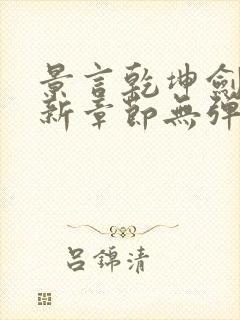 景言乾坤劍
新章節無彈
吕錦清